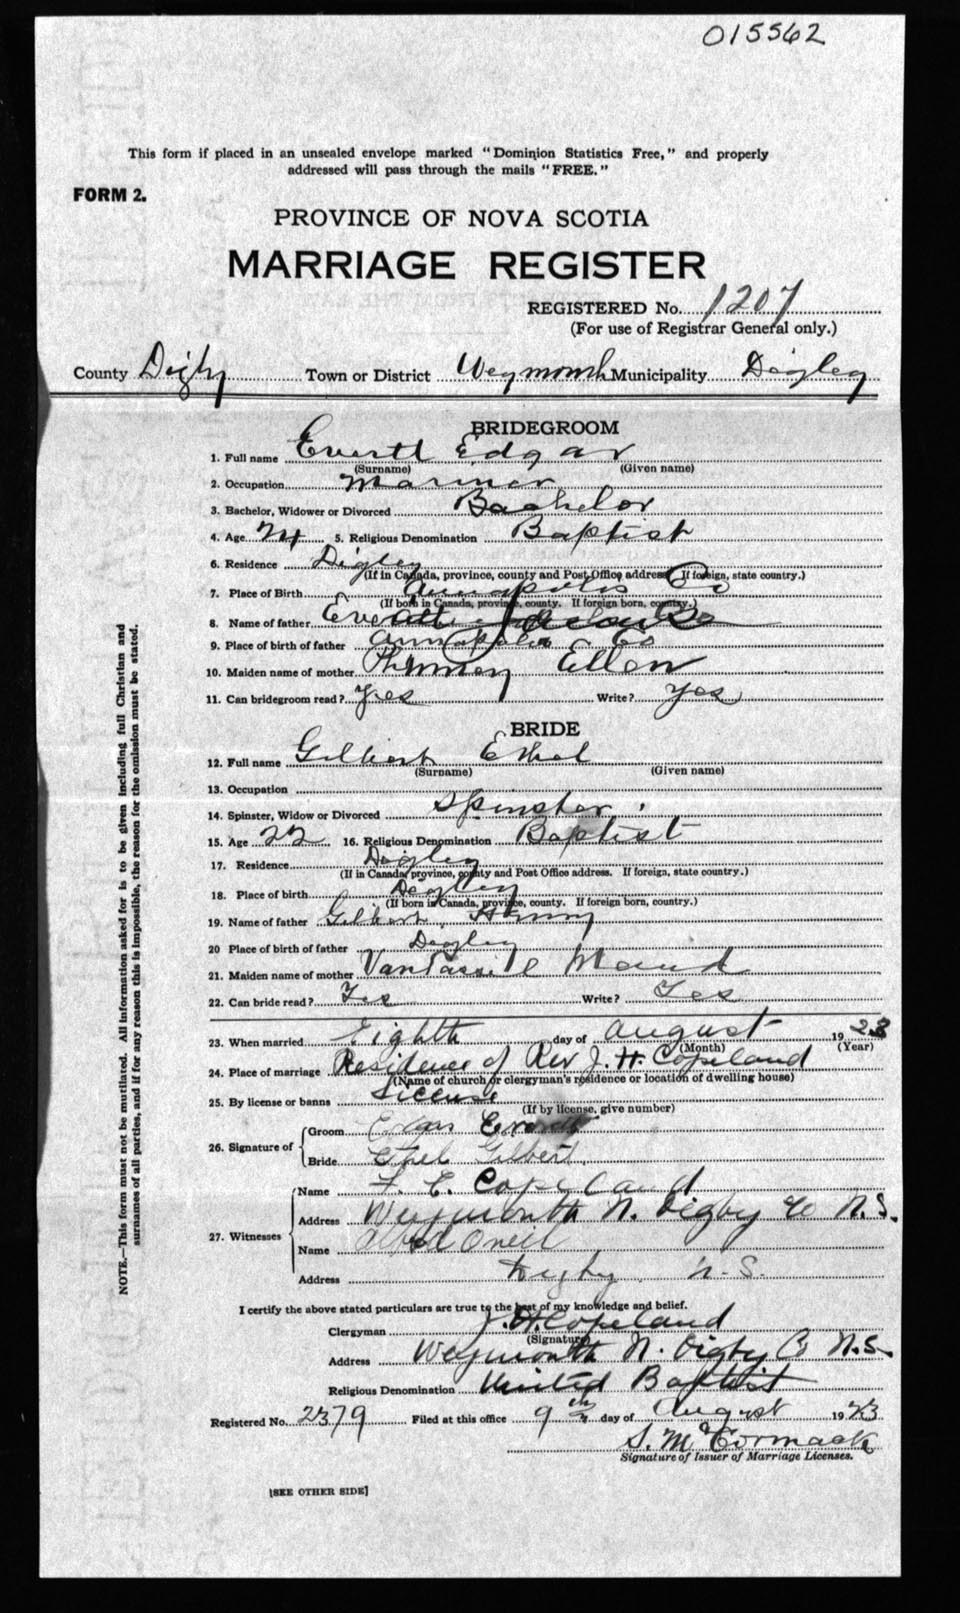 015562
This form if placed in an unsealed envelope marked "Dominion Statistics Free," and properly
addressed will pass through the mails "FREE."
FORM 2.
PROVINCE OF NOVA SCOTIA
MARRIAGE REGISTER
REGISTERED No. 1207
(For use of Registrar General only.)
County Digby Town or District Weymouth Municipality Digby
BRIDEGROOM
1. Full name Everett Edgar
(Surname) (Given name)
2. Occupation Mariner
3. Bachelor, Widower or Divorced Bachelor
4. Age 24 5. Religious Denomination Baptist
6. Residence Digby
(If in Canada, province, county and Post Office address. If foreign, state country.)
7. Place of Birth Annapolis Co
(If born in Canada, province, county. If foreign born, country.)
8. Name of father Everett
9. Place of birth of father Annapolis Co
10. Maiden name of mother Phinney Ellen
11. Can bridegroom read? Yes Write? Yes
BRIDE
12. Full name Gilbert Ethel
(Surname) (Given name)
13. Occupation
14. Spinster, Widow or Divorced Spinster
15. Age 22 16. Religious Denomination Baptist
17. Residence Digby
(If in Canada, province, county and Post Office address. If foreign, state country.)
18. Place of birth Digby
(If born in Canada, province, county. If foreign born, country.)
19. Name of father Gilbert Henry
20 Place of birth of father Digby
21. Maiden name of mother VanTassill Maud
22. Can bride read? Yes Write? Yes
23. When married Eighth day of August 1923
(Month) (Year)
24. Place of marriage Residence of Rev J. H. Copeland
(Name of church or clergyman's residence or location of dwelling house)
25. By license or banns License
(If by license, give number)
26. Signature of Groom Edgar Everett
Bride Ethel Gilbert
27. Witnesses Name F. C. Copeland
Address Weymouth N. Digby Co N.S.
Name Oneil
Address Digby N.S.
I certify the above stated particulars are true to the best of my knowledge and belief.
Clergyman J. H. Copeland
(Signature)
Address Weymouth N. Digby Co N.S.
Religious Denomination United Baptist
Registered No. 2379 Filed at this office 9th day of August 1923
S. McCormack
Signature of Issuer of Marriage Licenses.
[SEE OTHER SIDE]
NOTE.—This form must not be mutilated. All information asked for is to be given including full Christian and
surnames of all parties, and if for any reason this is impossible, the reason for the omission must be stated.